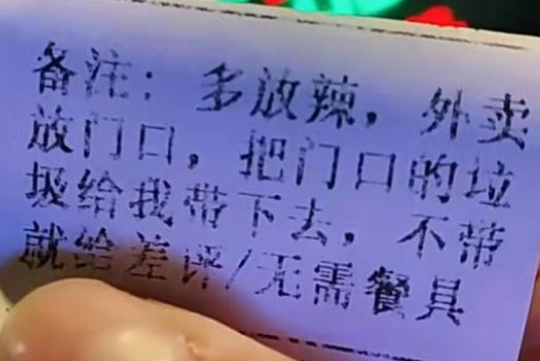 备注：多放辣，外卖
放门口，把门口的垃
圾给我带下去，不带
就给差评/无需餐具